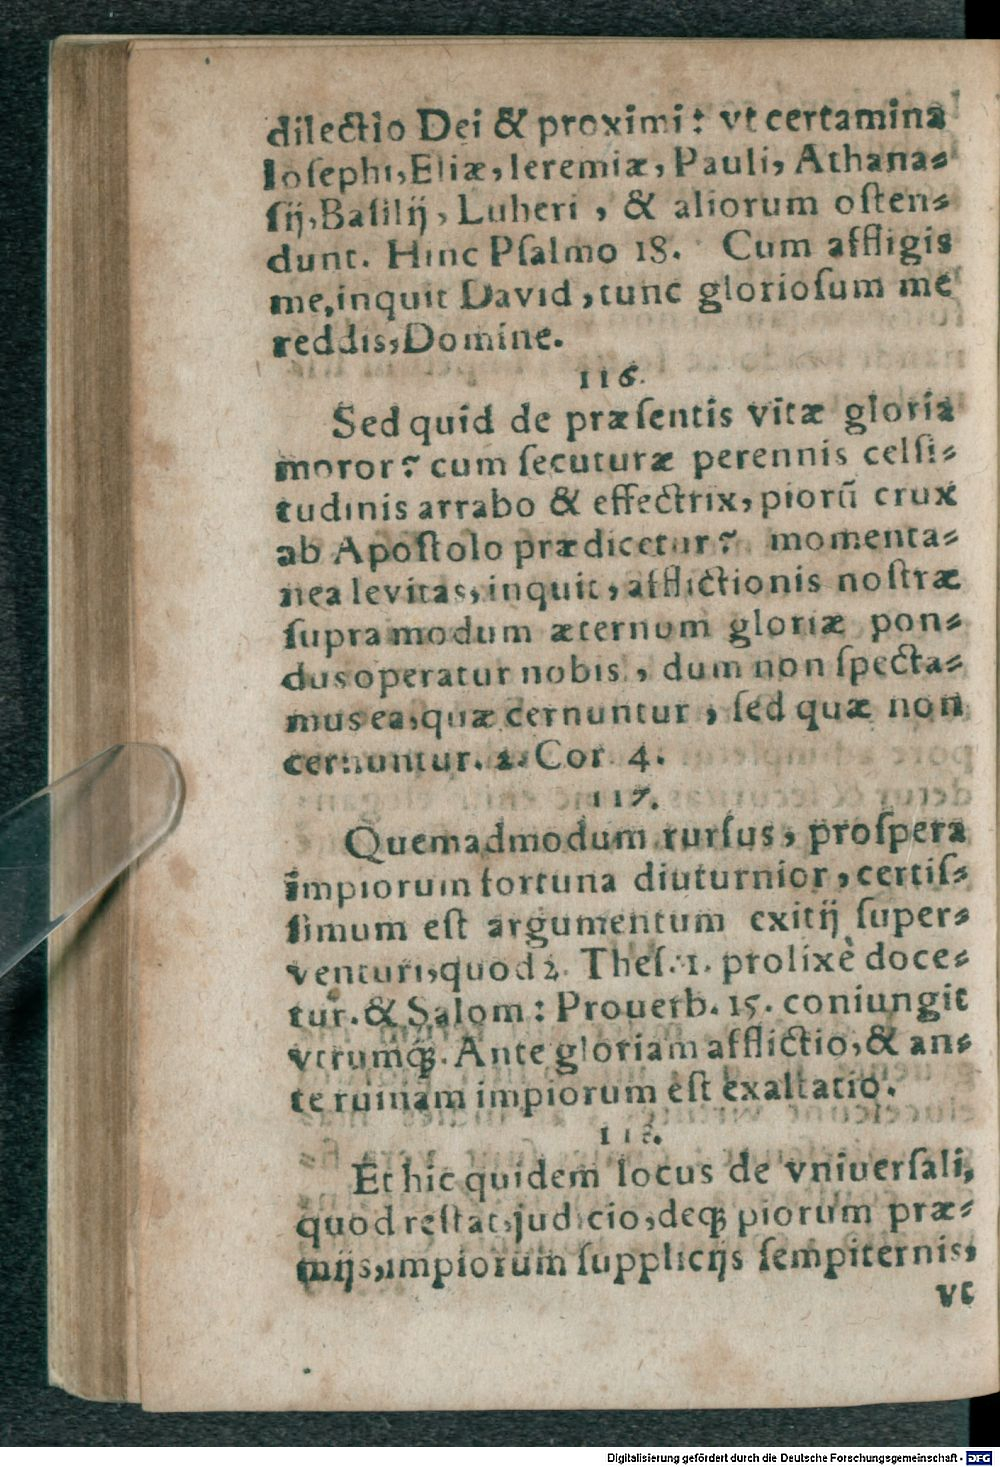 dilectio Dei & proximi: vt certamina
Iosephi, Eliæ, Ieremiæ, Pauli, Athana-
sij, Basilij, Luheri, & aliorum osten-
dunt. Hinc Psalmo 18. Cum affligis
me, inquit David, tunc gloriosum me
reddis, Domine.
116.
Sed quid de præsentis vitæ gloria
moror? cum secuturæ perennis celsi-
tudinis arrabo & effectrix, piorū crux
ab Apostolo prædicetur? momenta-
nea levitas, inquit, afflictionis nostræ
supra modum æternum gloriæ pon-
dus operatur nobis, dum non specta-
mus ea, quæ cernuntur, sed quæ non
cernuntur. 2. Cor 4.
117.
Quemadmodum rursus, prospera
impiorum fortuna diuturnior, certis-
simum est argumentum exitij super-
venturi, quod 2. Thes. 1. prolixè doce-
tur. & Salom: Prouerb. 15. coniungit
vtrumq́;. Ante gloriam afflictio, & an-
te ruinam impiorum est exaltatio.
118.
Et hic quidem locus de vniuersali,
quod restat, judicio, deq; piorum præ-
mijs, impiorum supplicijs sempiternis,
vt
Digitalisierung gefördert durch die Deutsche Forschungsgemeinschaft - DFG